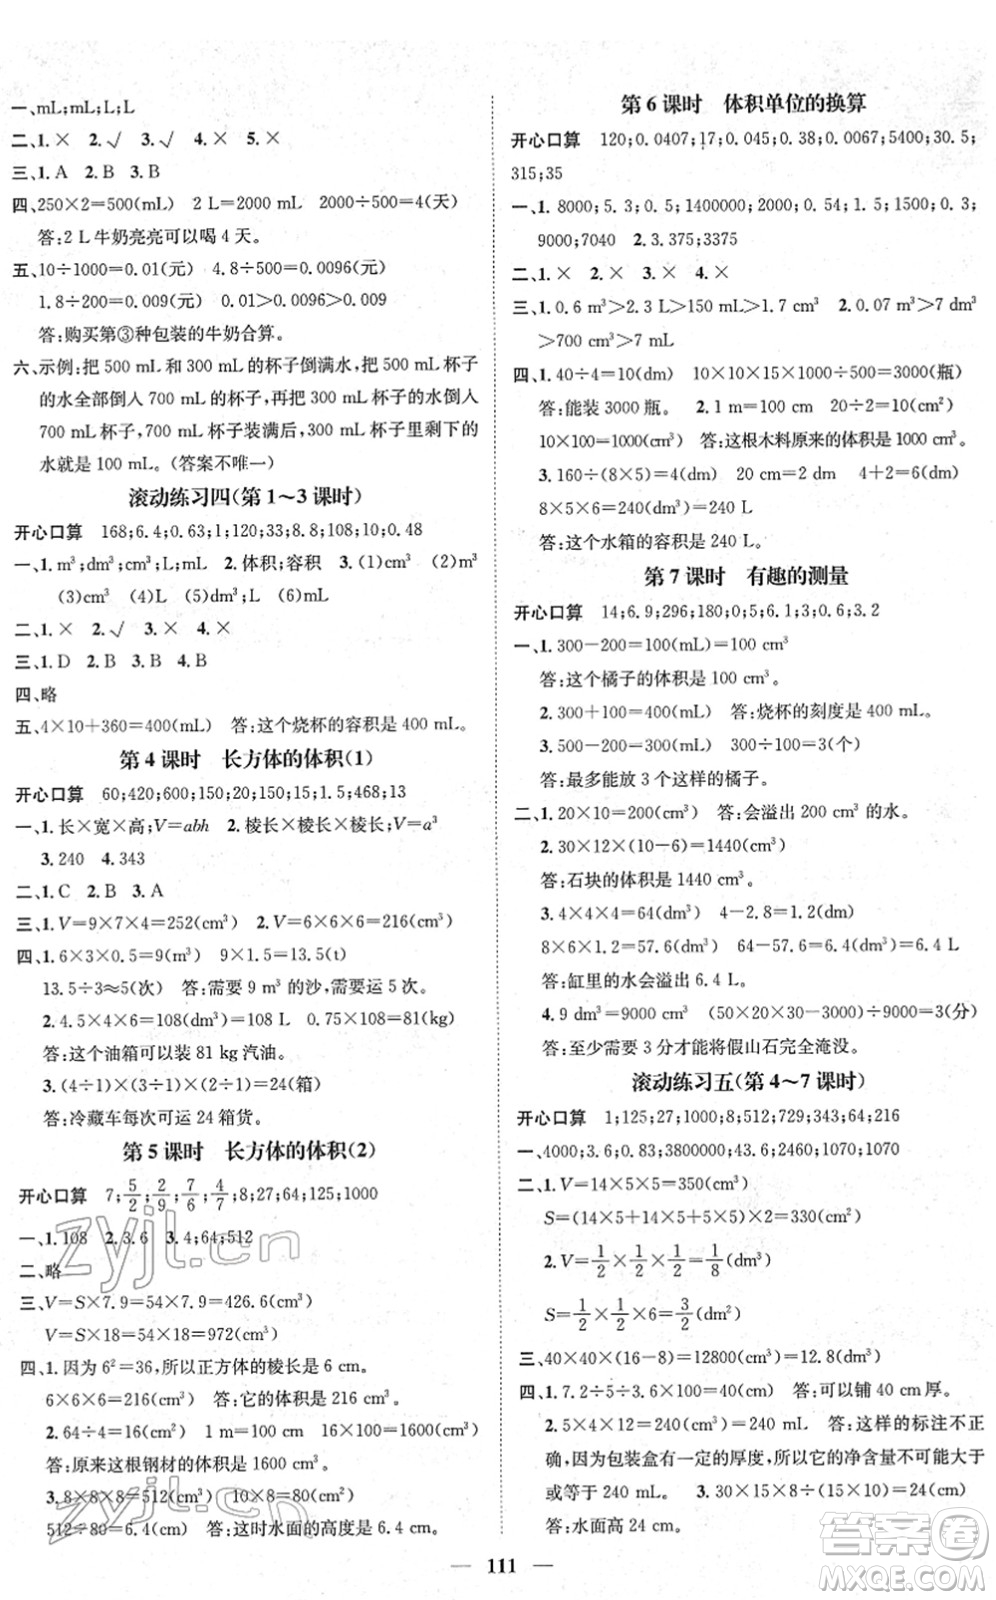 一、mL;mL;L;L
二、1.× 2.√ 3.√ 4.× 5.×
三、1.A 2.B 3.B
四、250×2=500(mL) 2 L=2000 mL 2000÷500=4(天)
答:2 L牛奶亮亮可以喝4天。
五、10÷1000=0.01(元) 4.8÷500=0.0096(元)
1.8÷200=0.009(元) 0.01>0.0096>0.009
答:购买第③种包装的牛奶合算。
六、示例:把500 mL和300 mL的杯子倒满水,把500 mL杯子
的水全部倒人700 mL的杯子,再把300 mL杯子的水倒人
700 mL杯子,700 mL杯子装满后,300 mL杯子里剩下的
水就是100 mL。(答案不唯一)
滚动练习四(第1~3课时)
开心口算 168;6.4;0.63;1;120;33;8.8;108;10;0.48
一、1.m³;dm³;cm³;L;mL 2.体积;容积 3.(1)cm³ (2)m³
(3)cm³ (4)L (5)dm³ (6)mL
二、1.× 2.√ 3.× 4.×
三、1.D 2.B 3.B 4.B
四、略
五、4×10+360=400(mL) 答:这个烧杯的容积是400 mL。
第4课时 长方体的体积(1)
开心口算 60;420;600;150;20;150;15;1.5;468;13
一、1.长×宽×高;V=abh 2.棱长×棱长×棱长;V=a³
3.240 4.343
二、1.C 2.B 3.A
三、1.V=9×7×4=252(cm³) 2.V=6×6×6=216(cm³)
四、1.6×3×0.5=9(m³) 9×1.5=13.5(t)
13.5÷3≈5(次) 答:需要9 m³的沙,需要运5次。
2.4.5×4×6=108(dm³)=108 L 0.75×108=81(kg)
答:这个油箱可以装81 kg汽油。
3.(4÷1)×(3÷1)×(2÷1)=24(箱)
答:冷藏车每次可运24箱货。
第5课时 长方体的体积(2)
开心口算 7;5/2;2/9;7/6;4/7;8;27;64;125;1000
一、1.108 2.3.6 3.4;64;512
二、略
三、V=S×7.9=54×7.9=426.6(cm³)
V=S×18=54×18=972(cm³)
四、1.因为6²=36,所以正方体的棱长是6 cm。
6×6×6=216(cm³) 答:它的体积是216 cm³。
2.64÷4=16(cm²) 1 m=100 cm 16×100=1600(cm³)
答:原来这根钢材的体积是1600 cm³。
3.8×8×8=512(cm³) 10×8=80(cm²)
512÷80=6.4(cm) 答:这时水面的高度是6.4 cm。
第6课时 体积单位的换算
开心口算 120;0.0407;17;0.045;0.38;0.0067;5400;30.5;
315;35
一、1.8000;5.3;0.5;1400000;2000;0.54;1.5;1500;0.3;
9000;7040 2.3.375;3375
二、1.× 2.× 3.× 4.×
三、1.0.6 m³>2.3 L>150 mL>1.7 cm³ 2.0.07 m³>7 dm³
>700 cm³>7 mL
四、1.40÷4=10(dm) 10×10×15×1000÷500=3000(瓶)
答:能装3000瓶。 2.1 m=100 cm 20÷2=10(cm²)
10×100=1000(cm³) 答:这根木料原来的体积是1000 cm³。
3.160÷(8×5)=4(dm) 20 cm=2 dm 4+2=6(dm)
8×5×6=240(dm³)=240 L
答:这个水箱的容积是240 L。
第7课时 有趣的测量
开心口算 14;6.9;296;180;0;5;6.1;3;0.6;3.2
一、1.300-200=100(mL)=100 cm³
答:这个橘子的体积是100 cm³。
2.300+100=400(mL) 答:烧杯的刻度是400 mL。
3.500-200=300(mL) 300÷100=3(个)
答:最多能放3个这样的橘子。
二、1.20×10=200(cm³) 答:会溢出200 cm³的水。
2.30×12×(10-6)=1440(cm³)
答:石块的体积是1440 cm³。
3.4×4×4=64(dm³) 4-2.8=1.2(dm)
8×6×1.2=57.6(dm³) 64-57.6=6.4(dm³)=6.4 L
答:缸里的水会溢出6.4 L。
4.9 dm³=9000 cm³ (50×20×30-3000)÷9000=3(分)
答:至少需要3分才能将假山石完全淹没。
滚动练习五(第4~7课时)
开心口算 1;125;27;1000;8;512;729;343;64;216
一、4000;3.6;0.83;3800000;43.6;2460;1070;1070
二、1.V=14×5×5=350(cm³)
S=(14×5+14×5+5×5)×2=330(cm²)
2.V=1/2×1/2×1/2=1/8(dm³)
S=1/2×1/2×6=3/2(dm²)
三、40×40×(16-8)=12800(cm³)=12.8(dm³)
四、1.7.2÷5÷3.6×100=40(cm) 答:可以铺40 cm厚。
2.5×4×12=240(cm³)=240 mL 答:这样的标注不正
确,因为包装盒有一定的厚度,所以它的净含量不可能大于
或等于240 mL。 3.30×15×10÷(15×20)=15(cm)
答:水面高15 cm。
111
zyjl.cn
zyjl.cn
答案圈
MXQE.COM